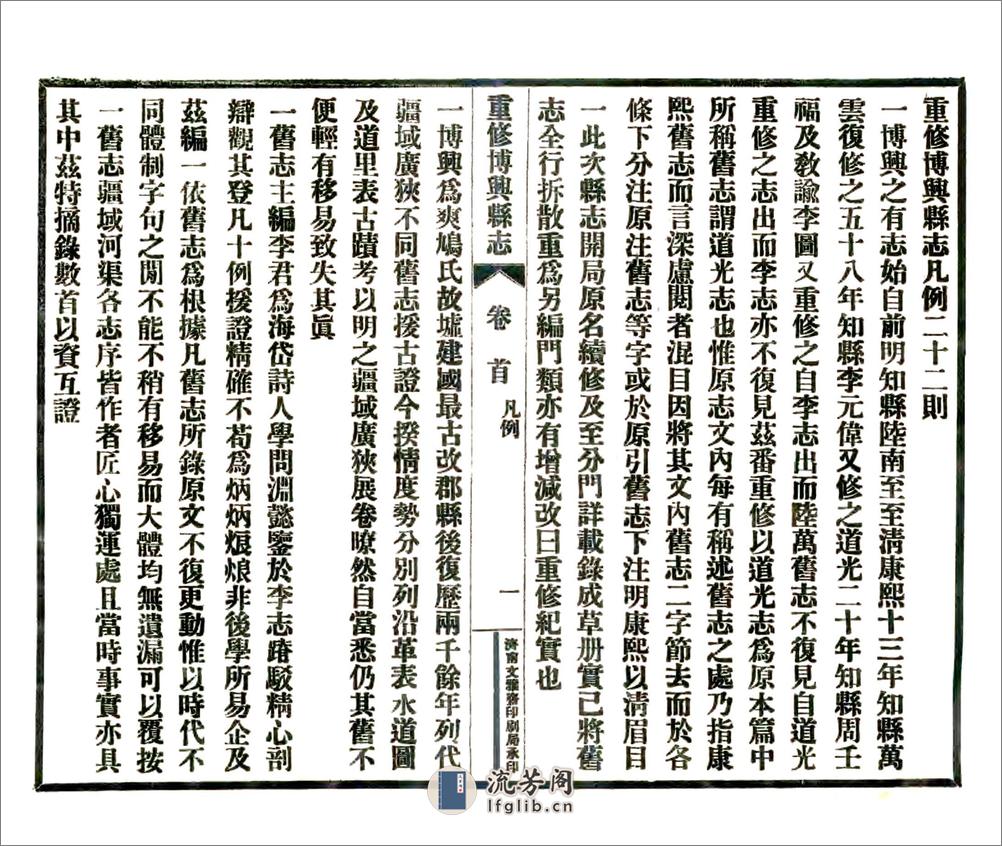 重修博興縣志凡例二十二則
一博興之有志始自前明知縣陸南至至淸康熙十三年知縣萬
雲復修之五十八年知縣李元偉又修之道光二十年知縣周壬
福及敎諭李圖又重修之自李志出而陸萬舊志不復見自道光
重修之志出而李志亦不復見茲番重修以道光志爲原本篇中
所稱舊志謂道光志也惟原志文內每有稱述舊志之處乃指康
熙舊志而言深慮閱者混目因將其文內舊志二字節去而於各
條下分注原注舊志等字或於原引舊志下注明康熙以淸眉目
一此次縣志開局原名續修及至分門詳載錄成草册實已將舊
志全行拆散重爲另編門類亦有增減改曰重修紀實也
重修博興縣志 卷首 凡例 一 濟南文雅齋印刷局承印
一博興爲爽鳩氏故墟建國最古改郡縣後復歷兩千餘年列代
疆域廣狹不同舊志援古證今揆情度勢分別列沿革表水道圖
及道里表古蹟考以明之疆域廣狹展卷暸然自當悉仍其舊不
便輕有移易致失其眞
一舊志主編李君爲海岱詩人學問淵懿鑒於李志踳駁精心剖
辯觀其登凡十例援證精確不苟爲炳炳烺烺非後學所易企及
茲編一依舊志爲根據凡舊志所錄原文不復更動惟以時代不
同體制字句之閒不能不稍有移易而大體均無遺漏可以覆按
一舊志疆域河渠各志序皆作者匠心獨運處且當時事實亦具
其中茲特摘錄數首以資互證
流芳阁
lfglib.cn